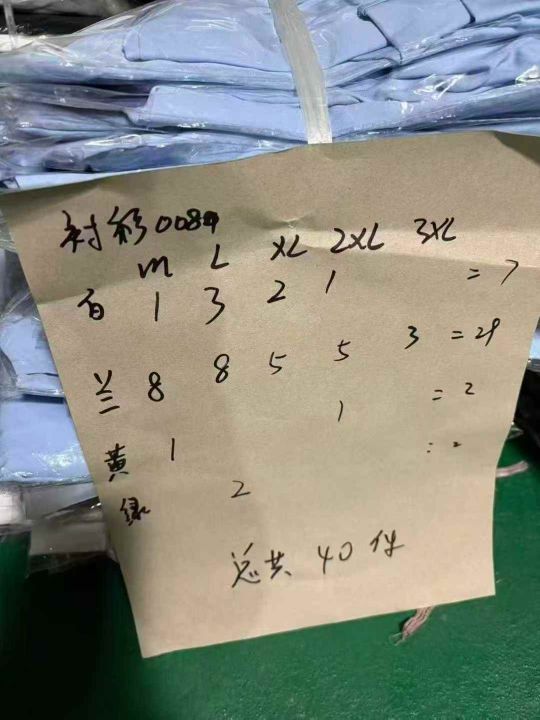 衬衫0089
M L XL 2XL 3XL
白 1 3 2 1 =7
兰 8 8 5 5 3 =29
黄 1 1 =2
绿 2 =2
总共 40件